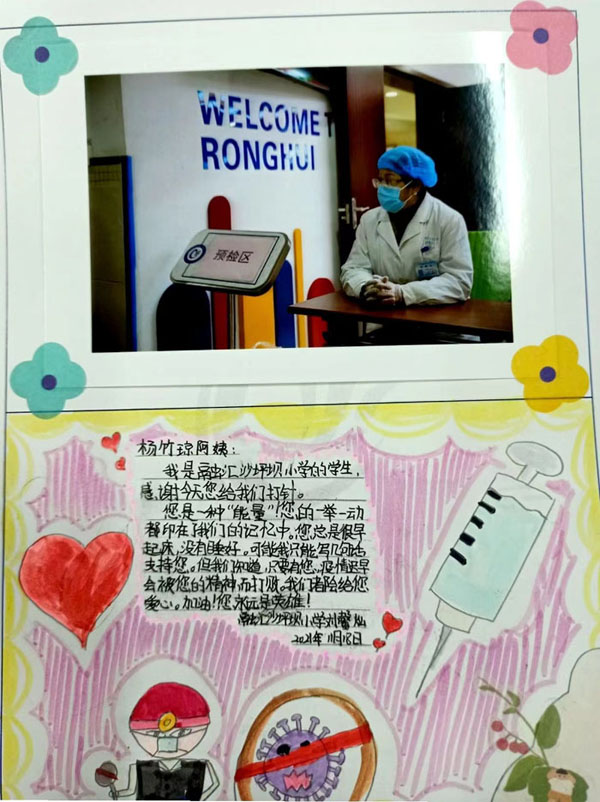 WELCOME T
RONGHUI
预检区
杨竹琼阿姨：
我是融汇沙坪坝小学的学生，
感谢今天您给我们打针。
您是一种“能量”！您的一举一动
都印在了我们的记忆中。您总是很早
起床，没有睡好。可能我只能写几句话
支持您。但我们知道，只要有您，疫情迟早
会被您的精神而打败。我们都会给您
爱心。加油！您永远是英雄！
融汇沙坪坝小学刘馨
2021年11月18日